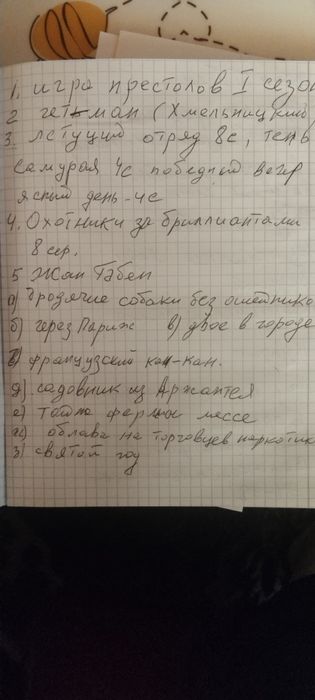 1. игра престолов I сезон
2 гетьман (Хмельницкий
3. летучий отряд 8с, тень
самурая 4с победный ветер
ясный день - 4с
4. Охотники за бриллиантами
8 сер.
5 Жан Габен
а) бродячие собаки без ошейнико
б) через Париж в) двое в городе
г) французский кан-кан.
д) садовник из Аржантея
е) тайна фермы мессе
ж) облава на торговцев наркотик
з) святой год